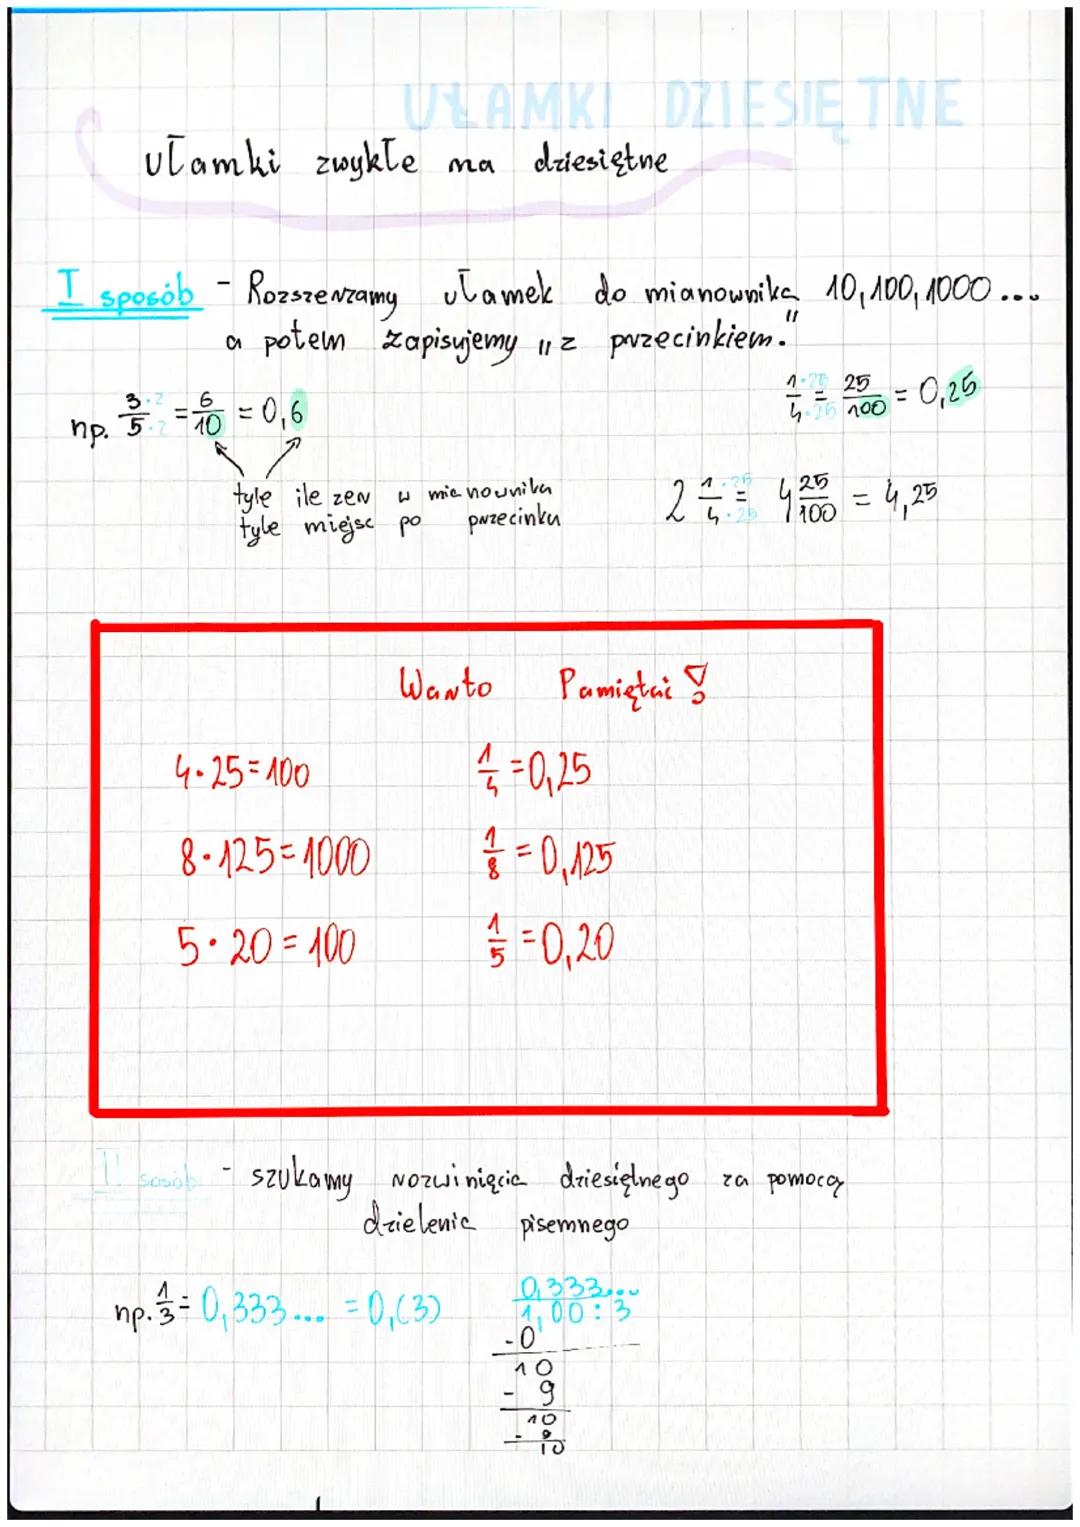 UŁAMKI DZIESIĘTNE
ułamki zwykłe na dziesiętne
I sposób - Rozszerzamy ułamek do mianownika 10, 100, 1000...
a potem zapisujemy „z przecinkiem."
np. 3·2/5·2 = 6/10 = 0,6
1·25/4·25 = 25/100 = 0,25
tyle ile zer w mianowniku
tyle miejsc po przecinku
2 1·25/4·25 = 4 25/100 = 4,25
Warto Pamiętać!
4·25=100 1/4=0,25
8·125=1000 1/8=0,125
5·20=100 1/5=0,20
II sosób - szukamy rozwinięcia dziesiętnego za pomocą
dzielenia pisemnego
np. 1/3 = 0,333... = 0,(3)
0,333...
1,00:3
-0
10
- 9
10
- 9
10